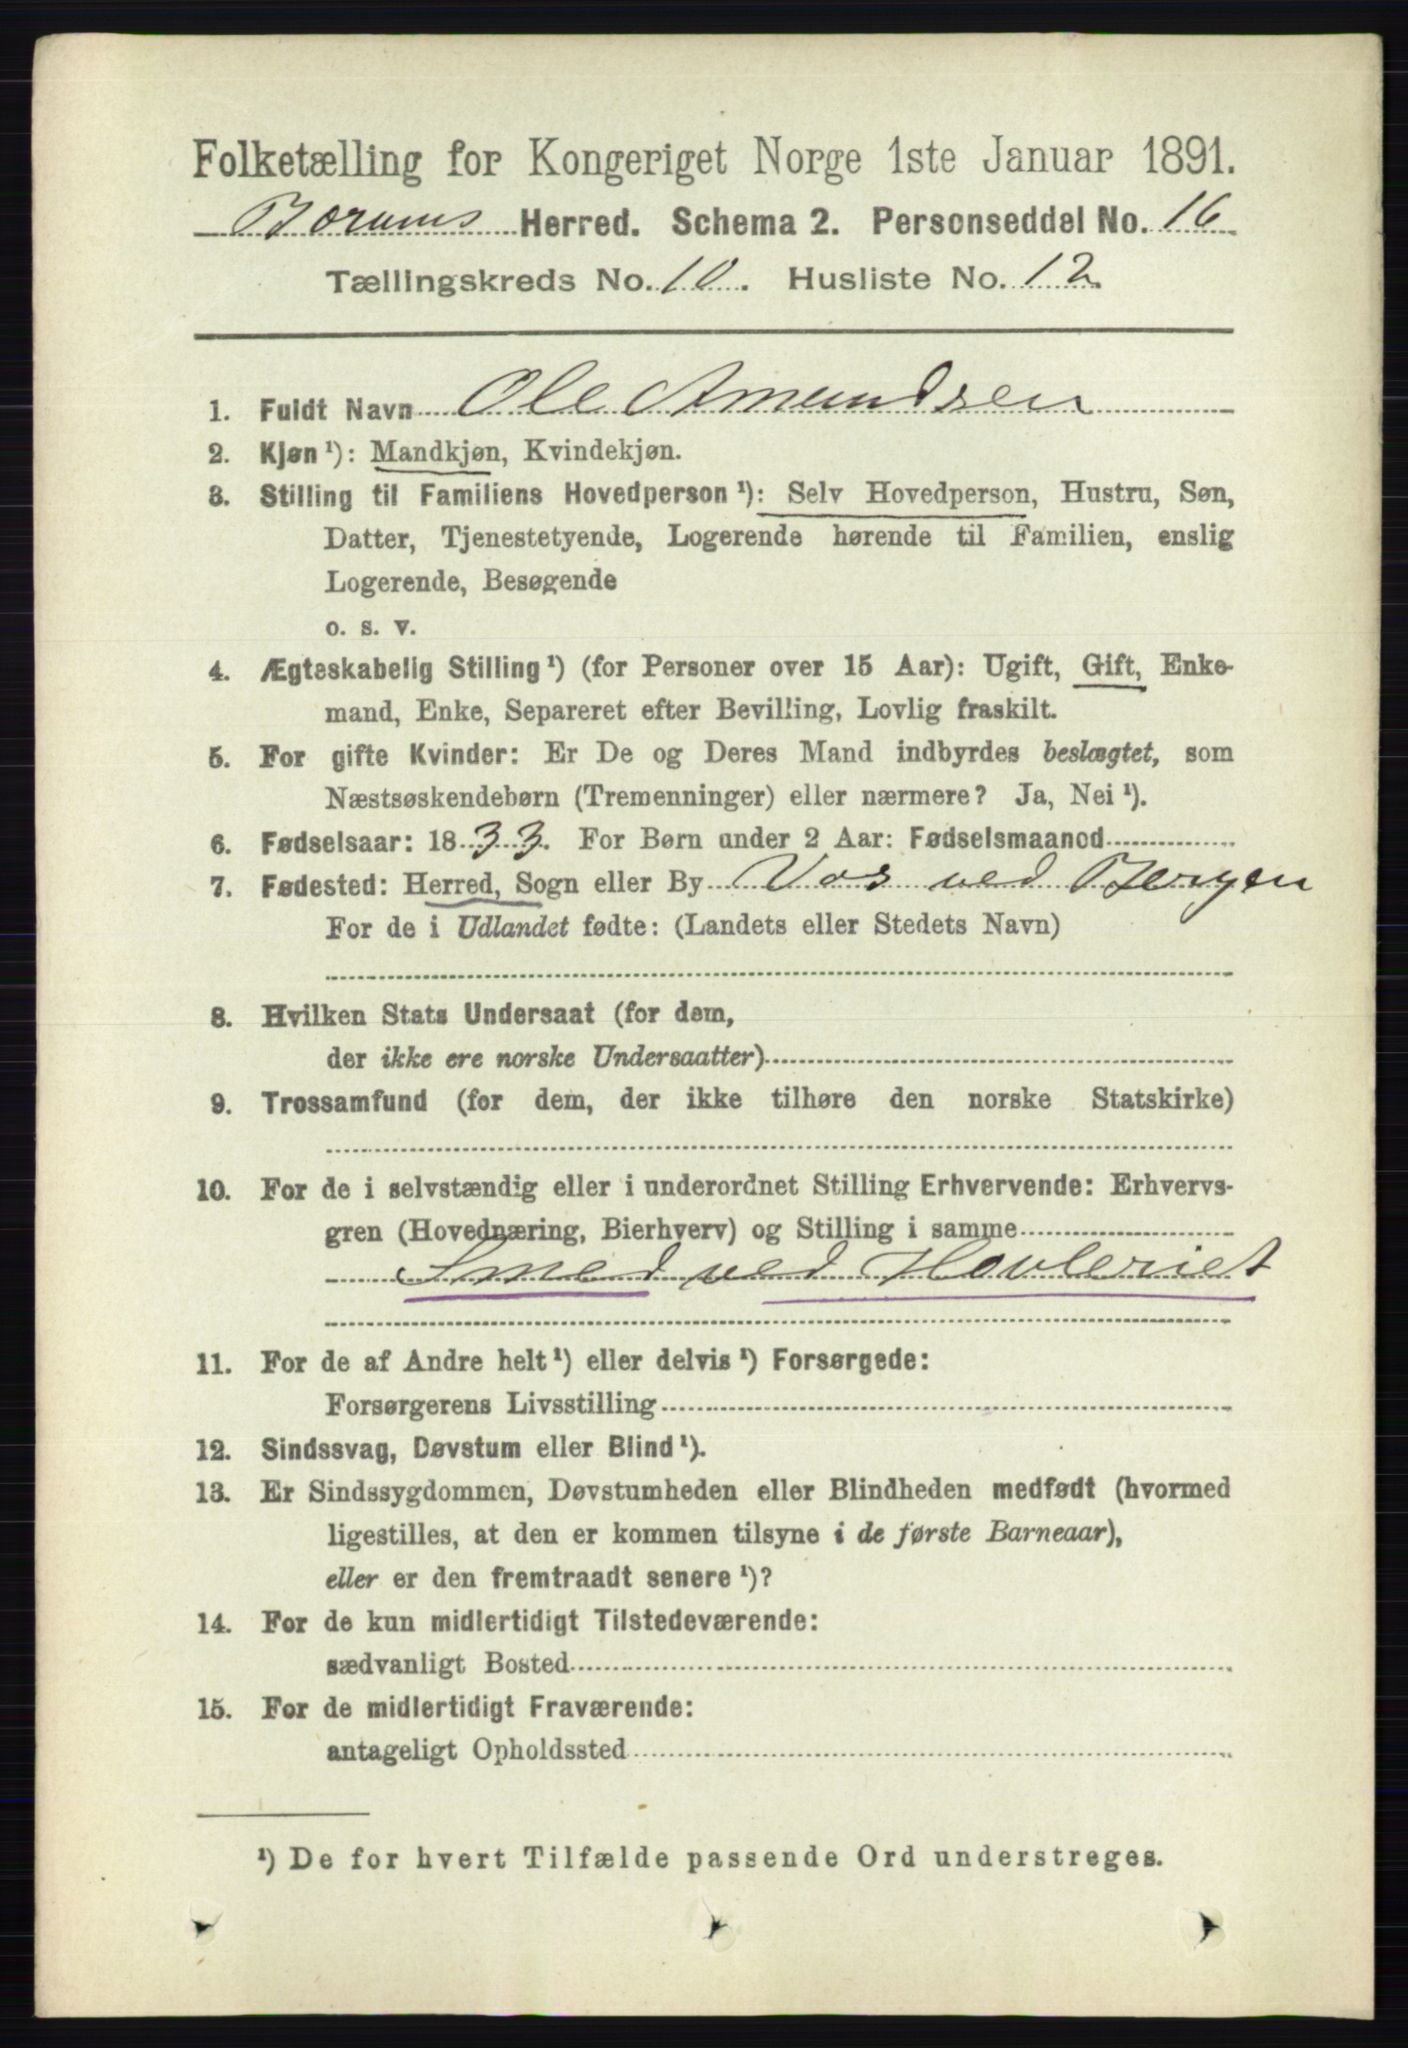 Folketælling for Kongeriget Norge 1ste Januar 1891.
Bærums Herred. Schema 2. Personseddel No. 16
Tællingskreds No. 10. Husliste No. 12.
1. Fuldt Navn Ole Amundsen
2. Kjøn ¹): Mandkjøn, Kvindekjøn.
3. Stilling til Familiens Hovedperson ¹): Selv Hovedperson, Hustru, Søn,
Datter, Tjenestetyende, Logerende hørende til Familien, enslig
Logerende, Besøgende
o. s. v.
4. Ægteskabelig Stilling ¹) (for Personer over 15 Aar): Ugift, Gift, Enke-
mand, Enke, Separeret efter Bevilling, Lovlig fraskilt.
5. For gifte Kvinder: Er De og Deres Mand indbyrdes beslægtet, som
Næstsøskendebørn (Tremenninger) eller nærmere? Ja, Nei ¹).
6. Fødselsaar: 1833. For Børn under 2 Aar: Fødselsmaaned
7. Fødested: Herred, Sogn eller By Vos ved Bergen
For de i Udlandet fødte: (Landets eller Stedets Navn)
8. Hvilken Stats Undersaat (for dem,
der ikke ere norske Undersaatter)
9. Trossamfund (for dem, der ikke tilhøre den norske Statskirke)
10. For de i selvstændig eller i underordnet Stilling Erhvervende: Erhvervs-
gren (Hovednæring, Bierhverv) og Stilling i samme
Smed ved Hovleriet
11. For de af Andre helt ¹) eller delvis ¹) Forsørgede:
Forsørgerens Livsstilling
12. Sindssvag, Døvstum eller Blind ¹).
13. Er Sindssygdommen, Døvstumheden eller Blindheden medfødt (hvormed
ligestilles, at den er kommen tilsyne i de første Barneaar),
eller er den fremtraadt senere ¹)?
14. For de kun midlertidigt Tilstedeværende:
sædvanligt Bosted
15. For de midlertidigt Fraværende:
antageligt Opholdssted
¹) De for hvert Tilfælde passende Ord understreges.